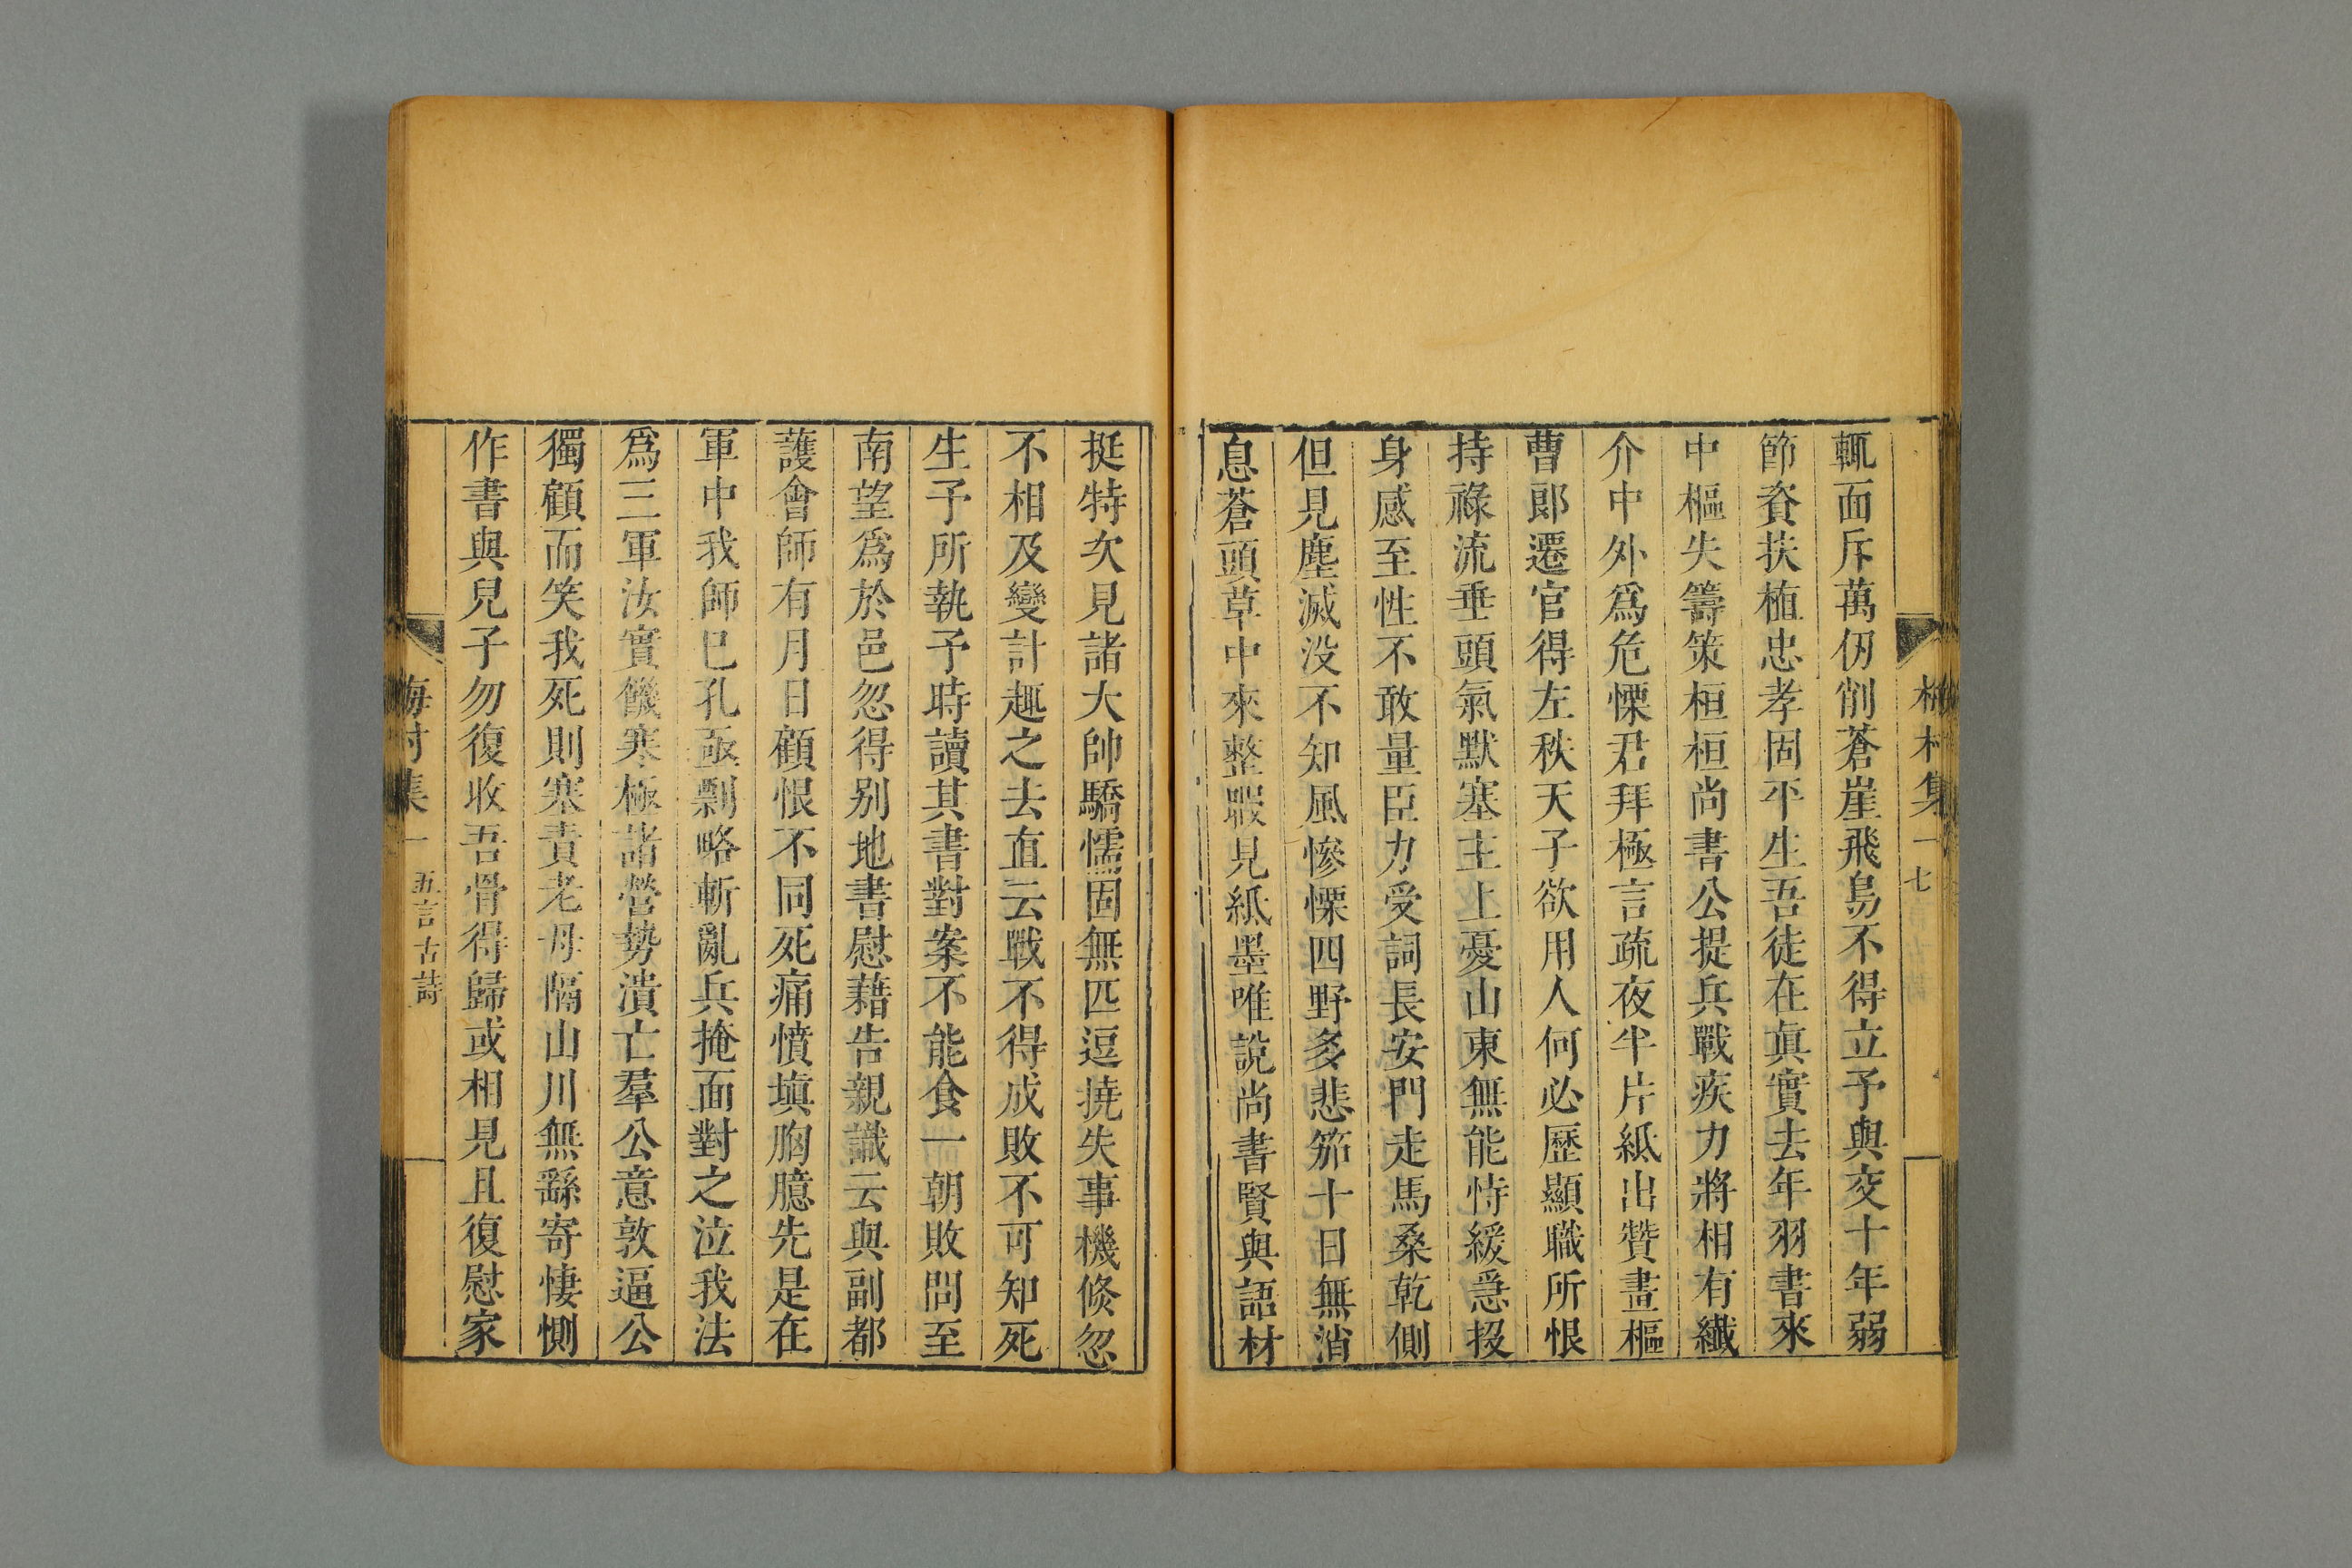 梅村集 一 七
輒面斥萬仞削蒼崖飛鳥不得立予與交十年弱
節資扶植忠孝固平生吾徒在眞實去年羽書來
中樞失籌策桓桓尚書公提兵戰疾力將相有纖
介中外爲危慄君拜極言疏夜半片紙出贊畫樞
曹郞遷官得左秩天子欲用人何必歷顯職所恨
持祿流垂頭氣默塞主上憂山東無能恃緩急投
身感至性不敢量臣力受詞長安門走馬桑乾側
但見塵滅没不知風慘慄四野多悲笳十日無消
息蒼頭草中來整暇見紙墨唯說尚書賢與語材
挺特次見諸大帥驕懦固無匹逗撓失事機倐忽
不相及變計趣之去直云戰不得成敗不可知死
生予所執予時讀其書對案不能食一朝敗問至
南望爲於邑忽得别地書慰藉告親識云與副都
護會師有月日顧恨不同死痛憤塡胸臆先是在
軍中我師已孔亟剽略斬亂兵掩面對之泣我法
爲三軍汝實饑寒極諸營勢潰亡羣公意敦逼公
獨顧而笑我死則塞責老母隔山川無繇寄悽惻
作書與兒子勿復收吾骨得歸或相見且復慰家
梅村集 一 五言古詩